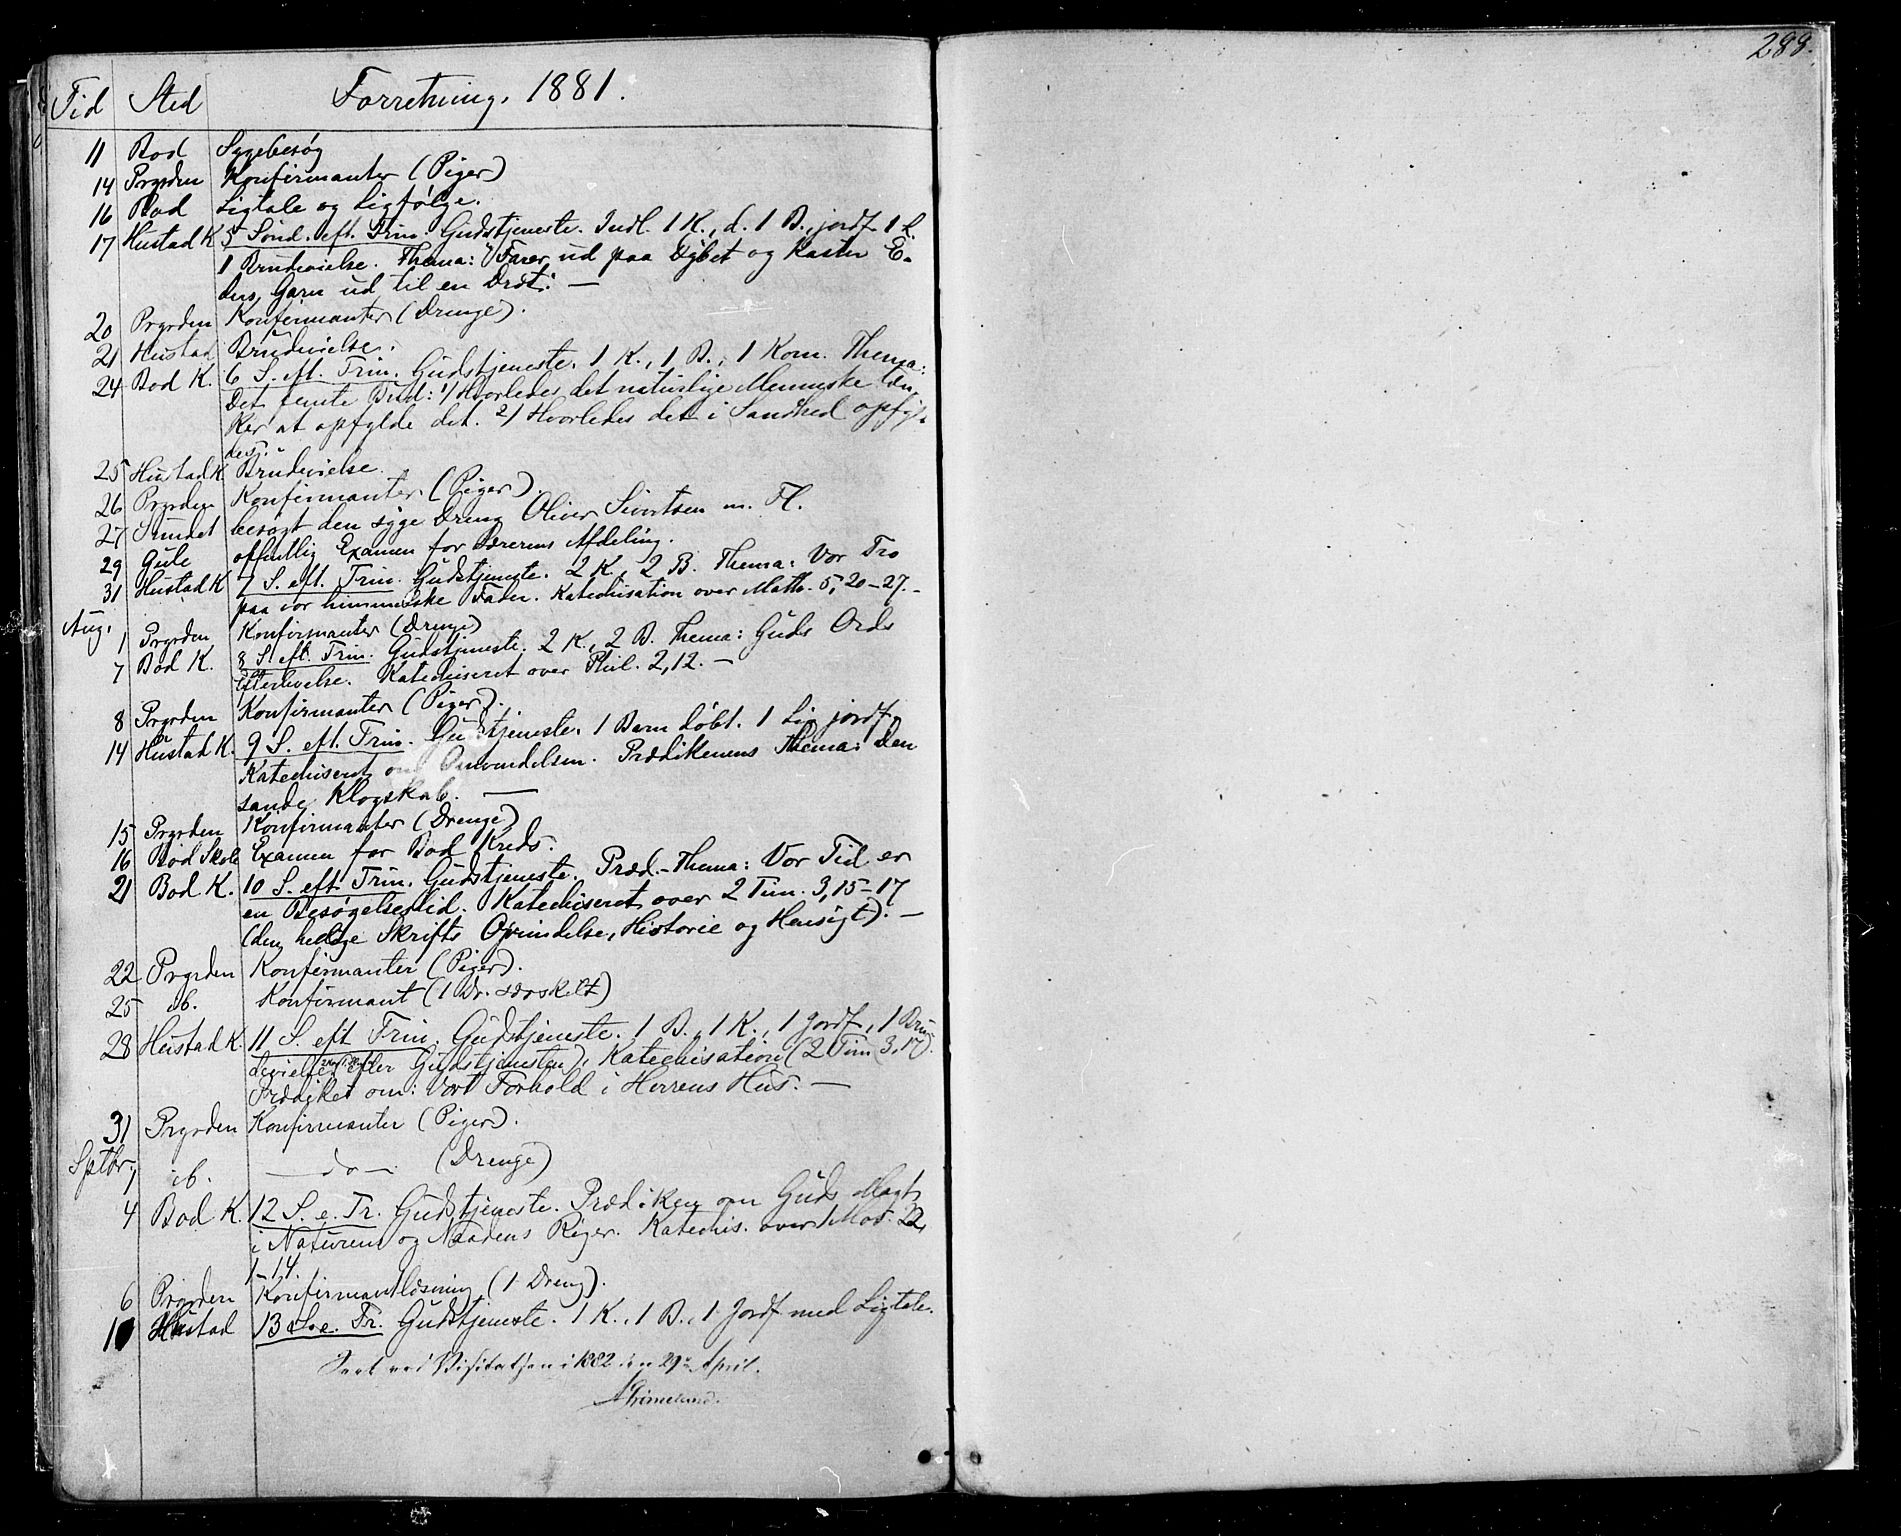 288.
Tid Sted Forretning. 1881.
11 Bod Sygebesøg
14 Prgrden Konfirmanter (Piger)
16 Bod Ligtale og Ligfølge.
17 Hustad K 5 Sønd. eft. Trin. Gudstjeneste. Indl. 1 K., d. 1 B., jordf. 1 L.
1 Brudevielse. Thema: "Farer ud paa Dybet og kaster E-
ders Garn ud til en Dræt". —
20 Prgrden Konfirmanter (Drenge).
21 Hustad Brudevielse.
24 Bod K. 6 S. eft. Trin. Gudstjeneste. 1 K., 1 B., 1 Kom. Thema:
Det femte Bud: 1) Hvorledes det naturlige Menneske tæn-
ker at opfylde det. 2) Hvorledes det i Sandhed opfyl-
des.
25 Hustad K Brudevielse.
26 Prgrden Konfirmanter (Piger).
27 Sundet besøgt den syge Dreng Oliver Sivertsen m. Fl.
29 Gule offentlig Examen for Lærerens Afdeling.
31 Hustad K 7 S. eft. Trin. Gudstjeneste. 2 K., 2 B. Thema: Vor Tro
paa vor himmelske Fader. Katechisation over Matth. 5, 20-27. -
Aug.
1 Prgrden Konfirmanter (Drenge)
7 Bod K. 8 S. eft. Trin. Gudstjeneste. 2 K., 2 B. Thema: Guds Ords
Efterlevelse. Katechiseret over Phil. 2, 12. —
8 Prgrden Konfirmanter (Piger).
14 Hustad K. 9 S. eft. Trin. Gudstjeneste. 1 Barn døbt. 1 Lig jordf.
Katechiseret om Omvendelsen. Prædikenens Thema: Den
sande Klogskab. —
15 Prgrden Konfirmanter (Drenge)
16 Bod Skole Examen for Bod Kreds.
21 Bod K. 10 S. eft Trin. Gudstjeneste. Præd.-Thema: Vor Tid er
en Besøgelsestid. Katechiseret over 2 Tim. 3, 15-17
(den hellige Skrifts Oprindelse, Historie og Hensigt). —
22 Prgrden Konfirmanter (Piger).
25 ib. Konfirmant (1 Dr. særskilt)
28 Hustad K. 11 S. eft Trin. Gudstjeneste. 1 B., 1 K., 1 Jordf., 1 Bru-
devielse efter Gudstjenesten). Katechisation (2 Tim 3, 17).
Prædiket om: Vort Forhold i Herrens Hus. —
31 Prgrden Konfirmanter (Piger).
Sptbr.
1 ib. — do — (Drenge)
4 Bod K. 12 S. e. Tr. Gudstjeneste. Prædiken om Guds Magt
i Naturens og Naadens Riger. Katechis. over 1 Mos. 22,
1-14.
6 Prgrden Konfirmantlæsning (1 Dreng).
Hustad 13 S. e. Tr. Gudstjeneste. 1 K., 1 B., 1 Jordf med Ligtale.
Seet ved Visitatsen i 1882 den 29de April.
Grimelund.